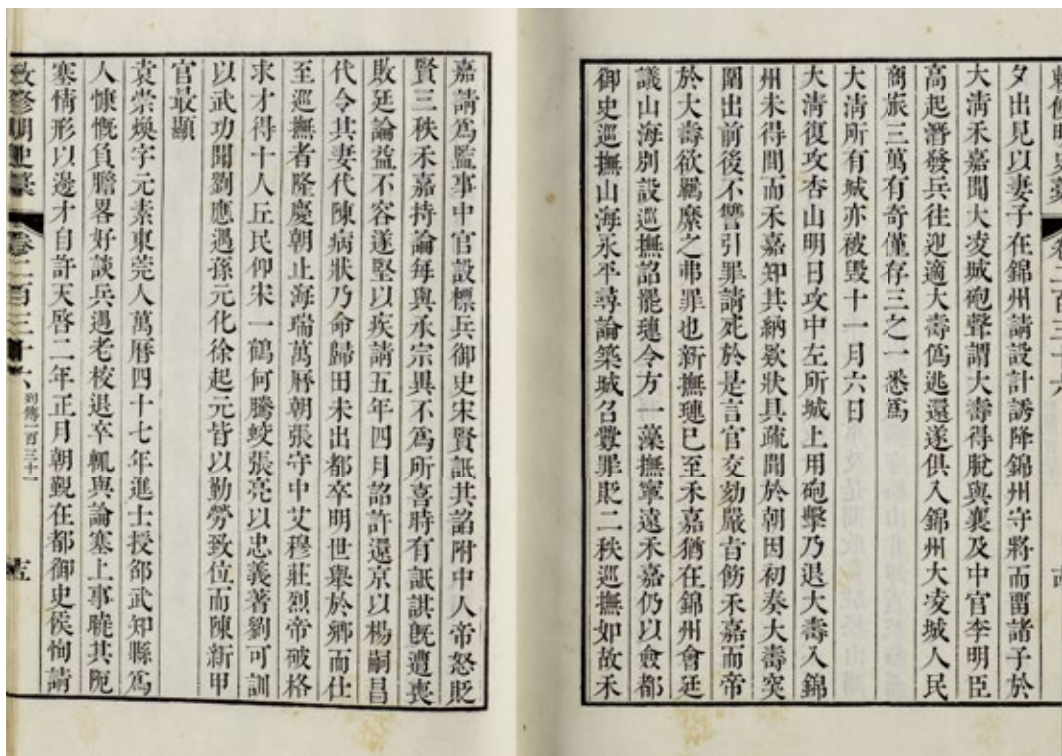 夕出見以妻子在錦州請設計誘降錦州守將而畱諸子於
大淸禾嘉聞大凌城砲聲謂大壽得脫與襄及中官李明臣
高起潛發兵往迎適大壽僞逃還遂俱入錦州大凌城人民
商旅三萬有奇僅存三之一悉爲
大淸所有城亦被毀十一月六日
大淸復攻杏山明日攻中左所城上用砲擊乃退大壽入錦
州未得間而禾嘉知其納欵狀具疏聞於朝因初奏大壽突
圍出前後不讐引罪請死於是言官交劾嚴旨飭禾嘉而帝
於大壽欲羈縻之弗罪也新撫璉已至禾嘉猶在錦州會廷
議山海別設巡撫詔罷璉令方一藻撫寧遠禾嘉仍以僉都
御史巡撫山海永平尋論築城召釁罪貶二秩巡撫如故禾
嘉請爲監事中官設標兵御史宋賢詆其諂附中人帝怒貶
賢三秩禾嘉持論每與承宗異不爲所喜時有詆諆旣遭喪
敗廷論益不容遂堅以疾請五年四月詔許還京以楊嗣昌
代令其妻代陳病狀乃命歸田未出都卒明世舉於鄉而仕
至巡撫者隆慶朝止海瑞萬曆朝張守中艾穆莊烈帝破格
求才得十人丘民仰宋一鶴何騰蛟張亮以忠義著劉可訓
以武功聞劉應遇孫元化徐起元皆以勤勞致位而陳新甲
官最顯
袁崇煥字元素東莞人萬曆四十七年進士授邵武知縣爲
人慷慨負膽畧好談兵遇老校退卒輒與論塞上事曉其阨
塞情形以邊才自許天啓二年正月朝覲在都御史侯恂請
卷二百三十六 列傳一百三十一